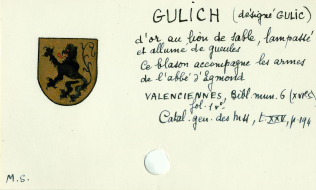 GULICH (désigné GULIC)
d'or au lion de sable, lampassé
et allumé de gueules
Ce blason accompagne les armes
de l'abbé d'Egmond
VALENCIENNES, Bibl. mun. 6 (XVIe s)
fol. 1 vº
Catal. gén. des mss, t. XXV, p. 194
M.S.